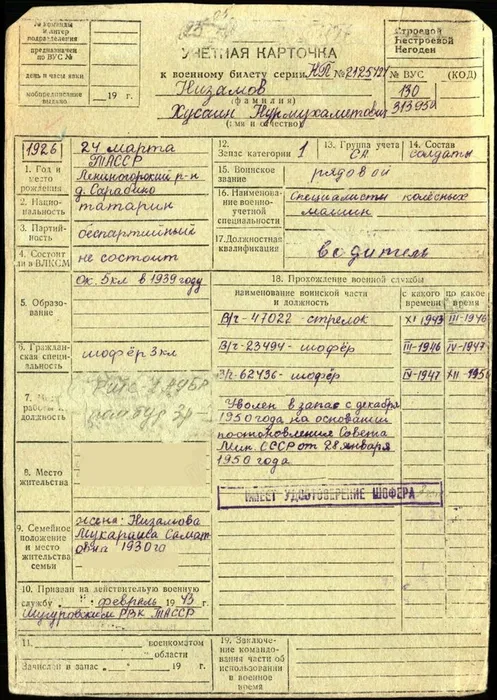 № команды
и литер
подразделения
предназначен
по ВУС №
день и часы явки
мобпредписание
выдано 19 г.
УЧЕТНАЯ КАРТОЧКА
к военному билету серии НП № 2125421
Низамов
(фамилия)
Хусаин Нурмухаметович
(имя и отчество)
Строевой
Нестроевой
Негоден
№ ВУС (КОД)
130
313950
1926 24 марта
ТАССР
1. Год и
место
рождения
Лениногорский р-н
д. Сарабино
2. Национальность
татарин
3. Партийность
беспартийный
4. Состоит
ли в ВЛКСМ
не состоит
5. Образование
Ок. 5кл в 1939 году
6. Гражданская
специальность
шофёр 3 кл
работы и
должность
8. Место
жительства
9. Семейное
положение
и место
жительства
семьи
жена: Низамова
1930 го
10. Призван на действительную военную
службу " " февраль 1943 г.
РВК ТАССР
11. военкоматом
области
Зачислен в запас " " 19 г.
12.
Запас категории 1
13. Группа учета
СА
14. Состав
солдаты
15. Воинское
звание
рядовой
16. Наименование
военно-
учетной
специальности
Специалисты колёсных
машин
17. Должностная
квалификация
водитель
18. Прохождение военной службы
наименование воинской части
и должность
с какого
времени
по какое
время
В/ч-47022 - стрелок XI 1943 III-1946
В/ч-23494 - шофёр III-1946 IV-1947
В/ч-62436 - шофёр IV-1947 XII-195
Уволен в запас с декабря
1950 года на основании
постоновления Совета
Мин. СССР от 28 января
1950 года
ИМЕЕТ УДОСТОВЕРЕНИЕ ШОФЕРА
19. Заключение
командования
части об
использовании
в военное
время